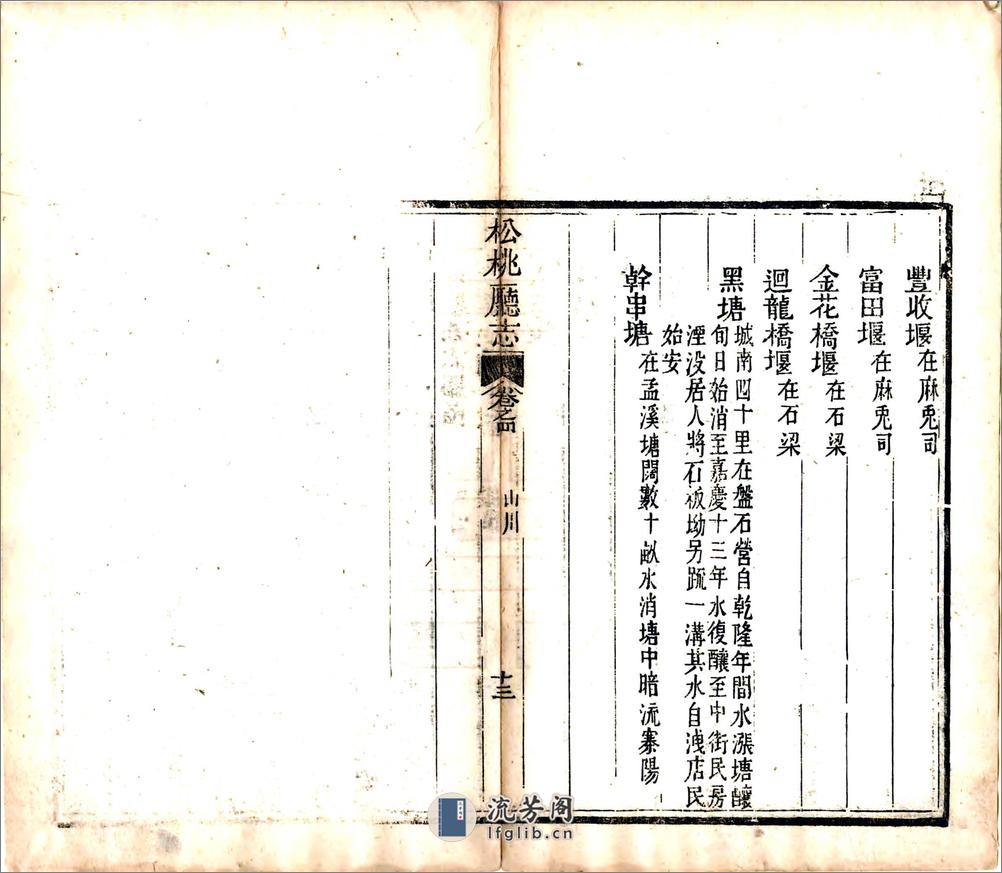 豐收堰在麻兎司
富田堰在麻兎司
金花橋堰在石梁
迴龍橋堰在石梁
黑塘城南四十里在盤石營自乾隆年間水漲塘釀
旬日始消至嘉慶十三年水復釀至中街民房
湮没居人將石板坳另䟽一溝其水自洩店民
始安
幹串塘在孟溪塘闊數十畝水消塘中暗流寨陽
松桃廳志
卷之四
山川
十三
流芳阁
lfglib.cn